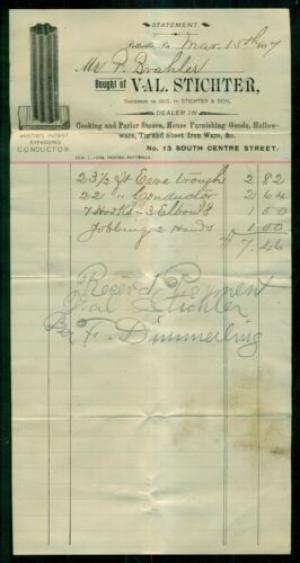 STATEMENT.
Pottsville, Pa., Mar 15th
Mr P. Brahler
Bought of VAL. STICHTER,
Successor to GEO. H. STICHTER & SON,
DEALER IN
Cooking and Parlor Stoves, House Furnishing Goods, Hollow-
ware, Tin and Sheet Iron Ware, &c.
No. 13 SOUTH CENTRE STREET.
AUSTIN'S PATENT
EXPANDING
CONDUCTOR.
23 1/2 ft Eave trough 2 82
22 " Conductor 2 64
7 Hooks - 3 Elbows 1 00
Jobbing 2 Hands 1 00
7.46
Recevd Payment
Val Stichler
Pr F. Dimmerling